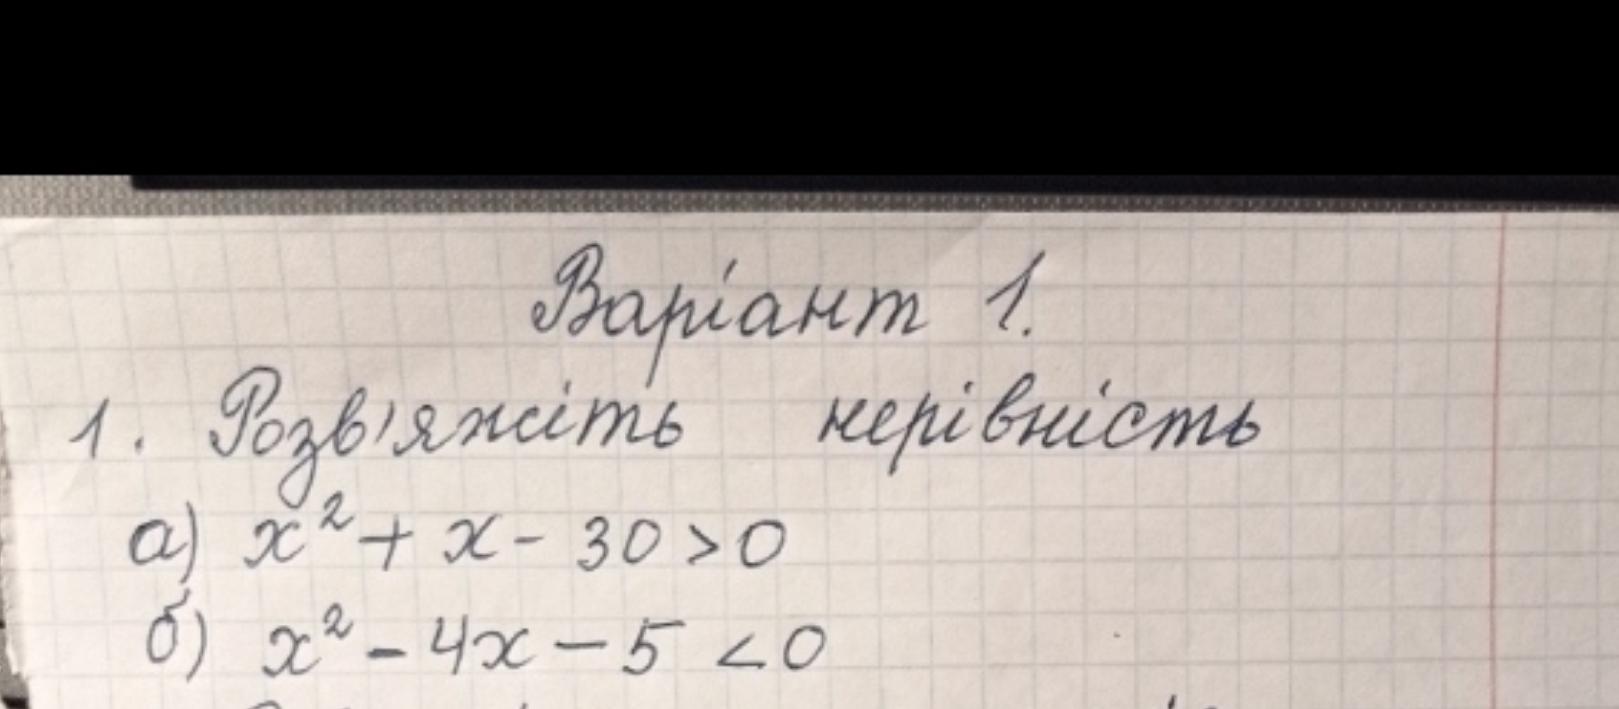 Варіант 1.
1. Розв'яжіть нерівність
а) x² + x - 30 > 0
б) x² - 4x - 5 < 0